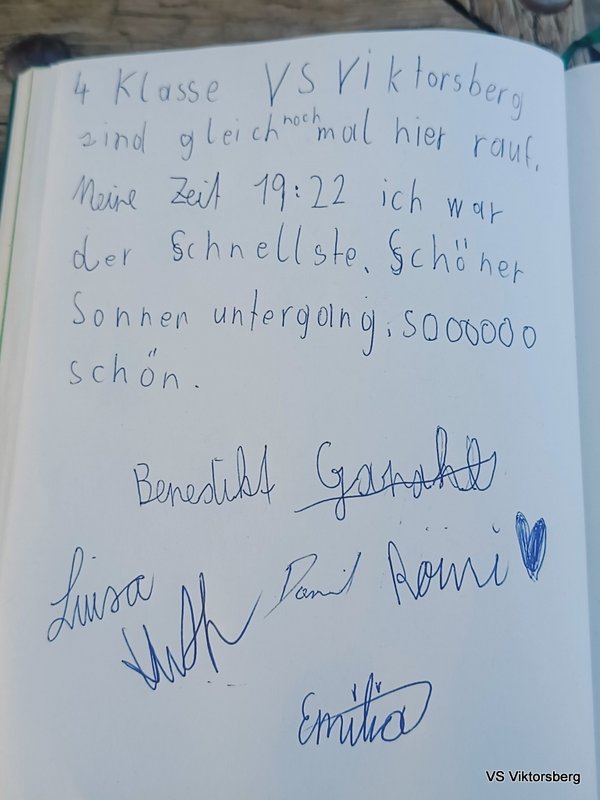 4 Klasse VS Viktorsberg
sind gleich noch mal hier rauf.
Meine Zeit 19:22 ich war
der Schnellste. Schöner
Sonnen untergang. soooooo
schön.
Benedikt
Luisa
Emilia
VS Viktorsberg